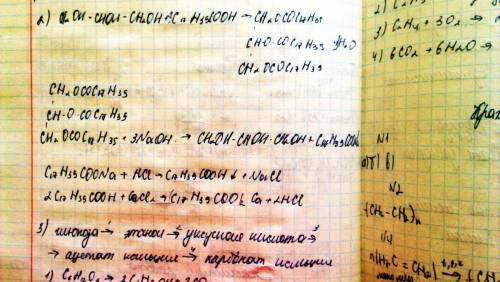 2) CH2OH-CHOH-CH2OH+3C17H35COOH → CH2OCOC17H35
CH-O-COC17H35 +3H2O
CH2OCOC17H35
CH2OCOC17H35
CH-O-COC17H35
CH2OCOC17H35 + 3NaOH → CH2OH-CHOH-CH2OH + C17H35COONa
C17H35COONa + HCl → C17H35COOH↓ + NaCl
2C17H35COOH + CaCl2 → (C17H35COO)2Ca + 2HCl
3) глюкоза → этанол → уксусная кислота →
ацетат кальция → карбонат кальция
1) C6H12O6 → 2C2H5OH + 2CO
3) C2H4 + 3O2 →
4) 6CO2 + 6H2O →
N1
а)Г) в)
N2
(CH2-CH2)n
N4
n(H2C = CH2)